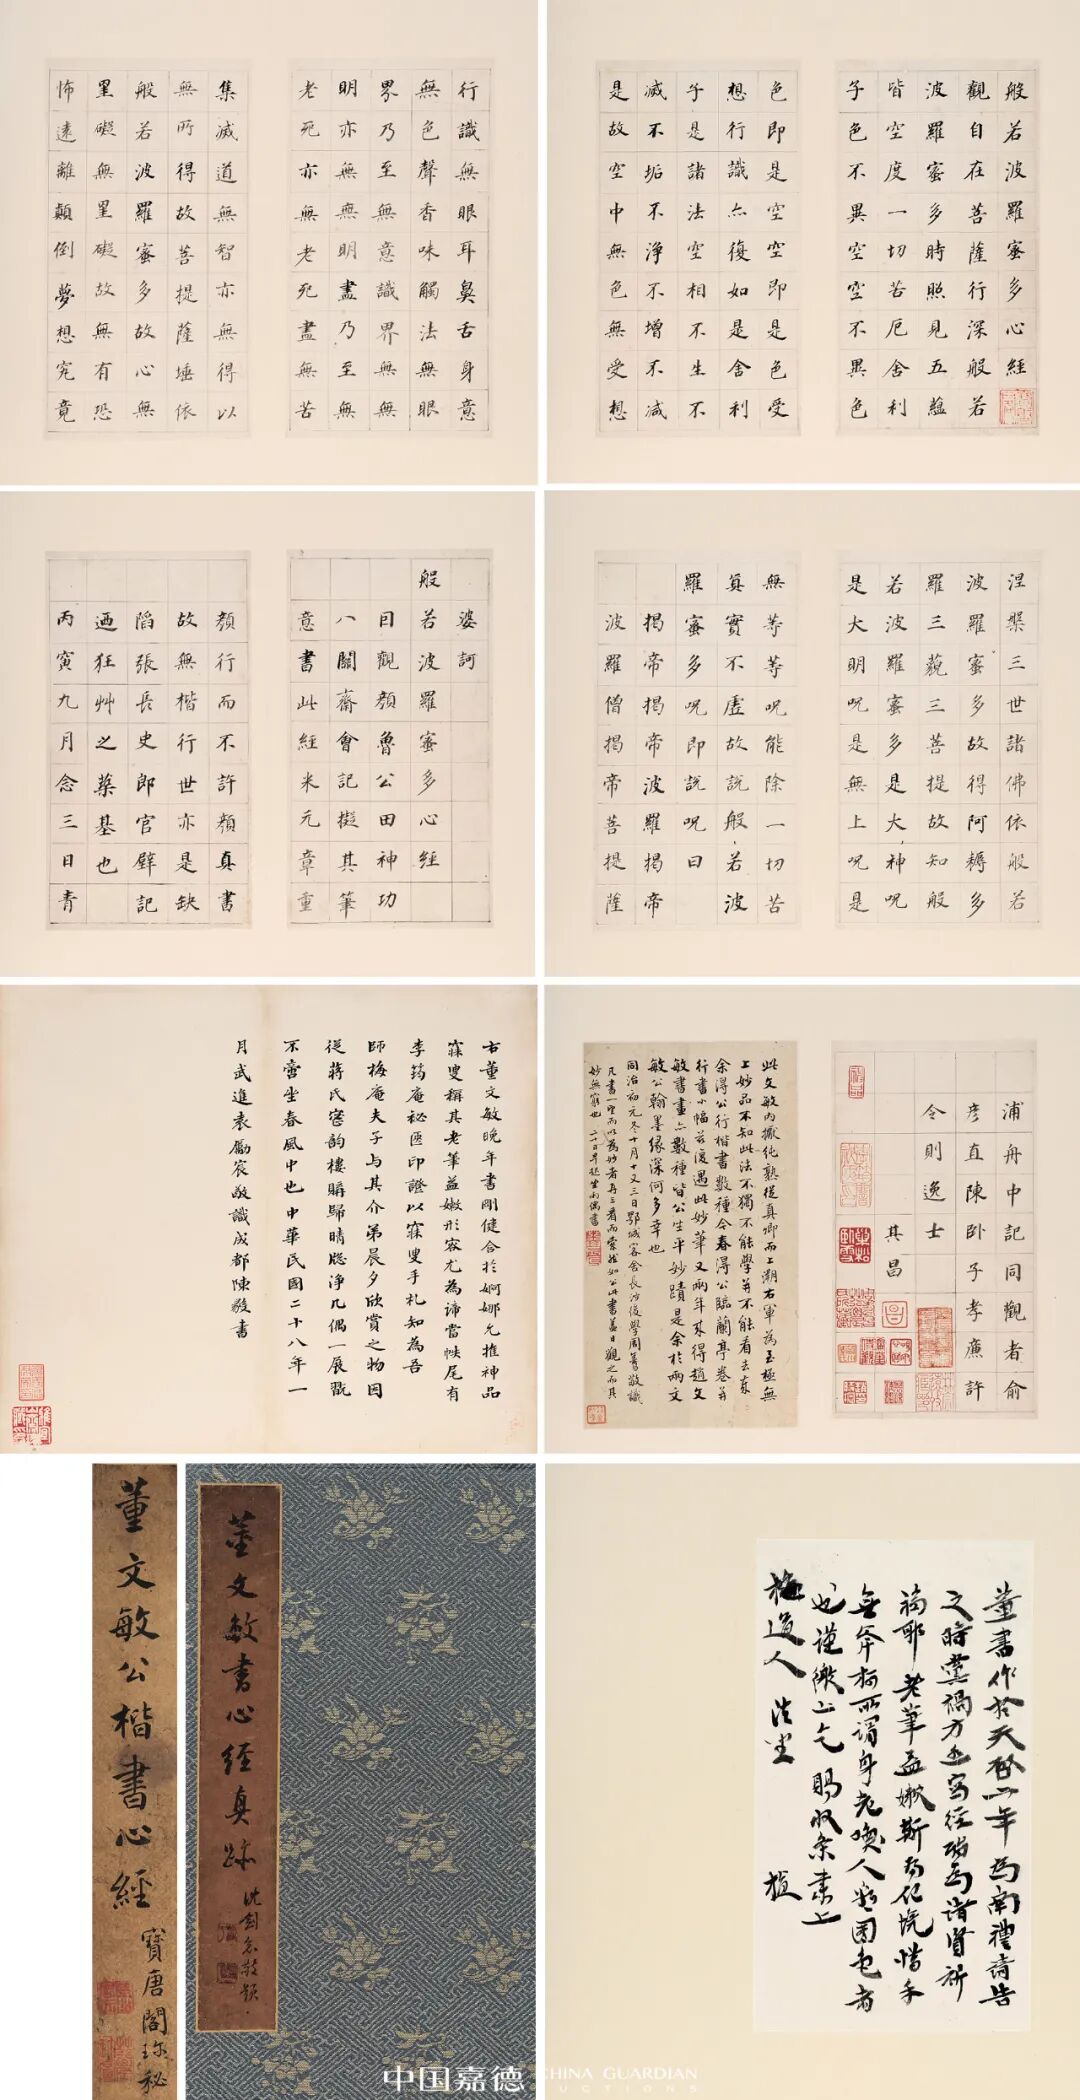 般若波羅蜜多心經
觀自在菩薩行深般若
波羅蜜多時照見五蘊
皆空度一切苦厄舍利
子色不異空空不異色
色即是空空即是色受
想行識亦復如是舍利
子是諸法空相不生不
滅不垢不淨不增不減
是故空中無色無受想
行識無眼耳鼻舌身意
無色聲香味觸法無眼
界乃至無意識界無無
明亦無無明盡乃至無
老死亦無老死盡無苦
集滅道無智亦無得以
無所得故菩提薩埵依
般若波羅蜜多故心無
罣礙無罣礙故無有恐
怖遠離顛倒夢想究竟
涅槃三世諸佛依般若
波羅蜜多故得阿耨多
羅三藐三菩提故知般
若波羅蜜多是大神呪
是大明呪是無上呪是
無等等呪能除一切苦
真實不虛故說般若波
羅蜜多呪即說呪曰
揭帝揭帝波羅揭帝
波羅僧揭帝菩提薩
婆訶
般若波羅蜜多心經
目觀顏魯公田神功
八關齋會記擬其筆
意書此經米元章重
顏行而不許顏真書
故無楷行世亦是缺
陷張長史郎官壁記
迺狂艸之築基也
丙寅九月念三日青
浦舟中記同觀者俞
彥直陳臥子孝廉許
令則逸士
其昌
此文敏內擫純熟從真卿而上溯右軍為至極無
上妙品不知此法不獨不能學并不能看去年
余得公行楷書數種今春得公臨蘭亭卷并
行書小幅茲復遇此妙筆又兩年來得趙文
敏書畫亦數種皆公生平妙蹟是余於兩文
敏公翰墨緣深何多幸也
同治初元冬十月十又三日鄂城客舍長沙後學周敬識
凡書一望而以為妙者再三看而索然如公此書盖日觀之而其
妙無窮也 二十日早起坐雨偶書
右董文敏晚年書剛健合於婀娜允推神品
寐叟稱其老筆益嫩形容尤為諦當帙尾有
李筠庵秘匧印證以寐叟手札知為吾
師梅庵夫子與其介弟晨夕欣賞之物因
從蔣氏密韵樓購歸晴牕淨几偶一展翫
不啻坐春風中也中華民國二十八年一
月武進袁勵宸敬識成都陳毅書
董書作於天啓六年為南禮請告
之時黨禍方亟寫經殆為諸賢祈
福耶老筆益嫩斯為化境惜手
無弇柯所謂身老喚人彩圖也者
也謹繳上乞賜收余書上
梅道人 法坐 植
董文敏書心經真跡
沈劍知敬題
董文敏公楷書心經
寶唐閣珍秘
中国嘉德
CHINA GUARDIAN
AUCTIONS